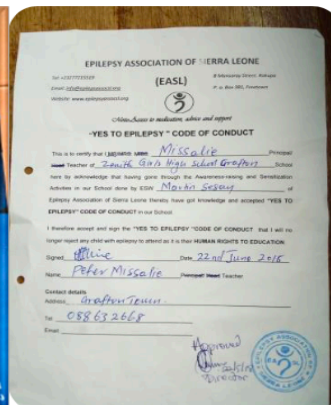 EPILEPSY ASSOCIATION OF SIERRA LEONE
(EASL)
Website: www.epilepsyassoct.org
P. o. Box 395, Freetown
Access to medication, advice and support
"YES TO EPILEPSY" CODE OF CONDUCT
This is to certify that Missalie Principal
Teacher of Zenith Girls High School Grafton School
here by acknowledge that having gone through the Awareness-raising and Sensitization
Activities in our School done by ESW Martin Sesay of
Epilepsy Association of Sierra Leone thereby have got knowledge and accepted "YES TO
EPILEPSY" CODE OF CONDUCT in our School.
I therefore accept and sign the "YES TO EPILEPSY "CODE OF CONDUCT that I will no
longer reject any child with epilepsy to attend as it is their HUMAN RIGHTS TO EDUCATION
Signed Date 22nd June 2015
Name Peter Missalie Principal Teacher
Contact details
Address Grafton Town
Tel 088632668
Email
Approved
EPILEPSY ASSOCIATION